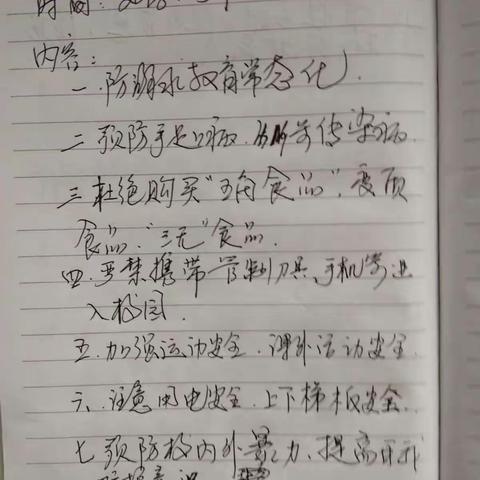 时间：2018.
内容：
一.防溺水教育常态化.
二预防手足口病.肺炎等传染病.
三杜绝购买"五角食品".变质
食品."三无"食品.
四.严禁携带管制刀具、手机等进
入校园.
五.加强运动安全.课外活动安全.
六、注意用电安全.上下楼梯安全.
七预防校内外暴力、提高自我